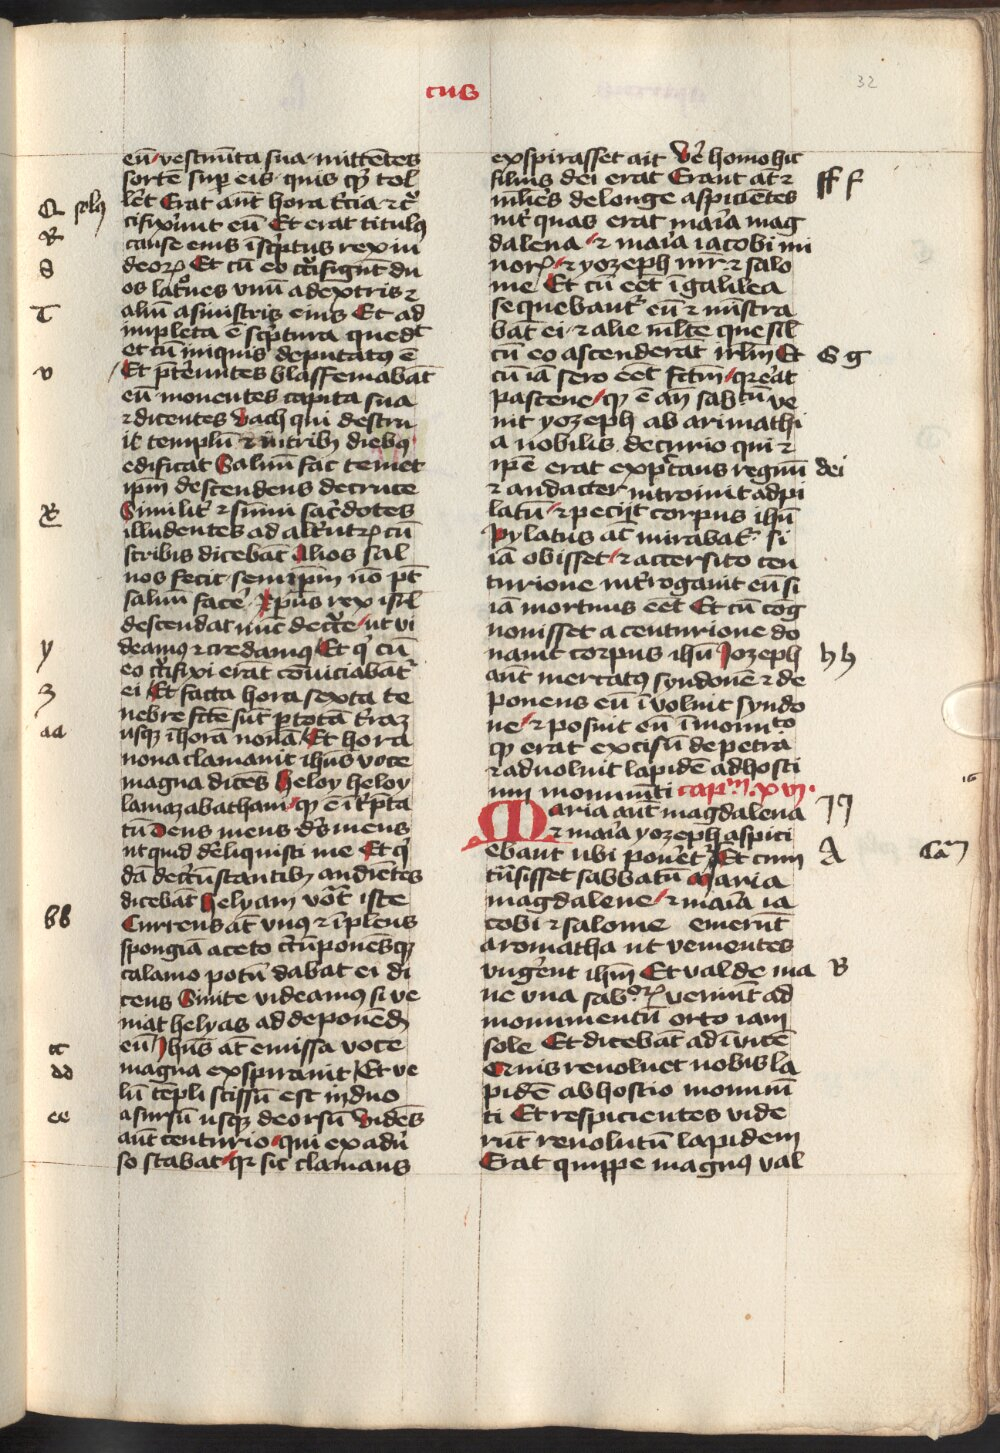 32
cus
eū vestimēta sua mittētes
sortē sup eis quis qͥ tol
let Erat aūt hora tercia ⁊ cͥ
cifixerūt eū Et erat titulꝰ
cause eius īscͥptus rex iu
deoꝝ Et cū eo crucifigūt du
os latͦnes vnū a dextris ⁊
aliū a sinistris eius Et ad
impleta ē scͥptura que dꝰt
et cū iniquis deputatꝰ ē
Et p̄tereuntes blasfemabāt
eū mouentes capita sua
⁊ dicentes Vach qui destru
it templū ⁊ in tribꝫ diebꝰ
edificat Saluū fac temet
ip̄m descendens de cruce
Similiter ⁊ sūmi sacerdotes
illudentes ad alterutꝝ cū
scribis dicebāt Alios sal
uos fecit semetip̄m nō pt̄
saluū facere Xpūs rex isrl̄
descendat nūc de cͥce ut vi
deamꝰ ⁊ credamꝰ Et qͥ cū
eo cͥcifixi erāt cōuiciabātͬ
ei Et facta hora sexta te
nebre fcte sūt p totā terrā
usqꝫ ī horā nonā Et hora
nona clamauit ihūs voce
magna dicēs heloy heloy
lamazabathani qͥ ē īterp̄ta
tū Deus meus dꝰs meus
ut quid dereliquisti me Et qͥ
dā de circūstantibꝫ audiētes
dicebāt helyam vocat iste
Currens aūt vnꝰ ⁊ īplens
spongiā aceto circūponēsqꝫ
calamo potū dabat ei di
cens Sinite videamꝰ si ve
niat helyas ad deponēdū
eū Ihūs aūt emissa voce
magna exspirauit Et ve
lū templi scissū est in duo
a sursū usqꝫ deorsū Vidēs
aūt centurio qui ex aduer
so stabat qꝛ sic clamans
exspirasset ait Vere homo hic
filius dei erat Erant aūt ⁊
mulieres de longe aspiciētes
inter quas erat maria mag
dalena ⁊ maria iacobi mi
noris ⁊ yozeph mr̄ ⁊ salo
me Et cū eēt ī galilea
sequebantͬ eū ⁊ mīstra
bāt ei ⁊ alie mlte que sil
cū eo ascenderāt irlm̄ Et
cū iā sero eēt fctm̄ qꝛ erat
pasceue qͥ ē an̄ sabtū ve
nit yozeph ab arimathi
a nobilis decurio qui ⁊
ip̄e erat exspectans regnū dei
⁊ audacter introiuit ad pi
latū ⁊ peciit corpus ihū
Pylatus aūt mirabatͬ si
iā obisset ⁊ accersito cen
turione interrogauit eū si
iā mortuus eēt Et cū cog
nouisset a centurione do
nauit corpus ihū Jozeph
aūt mercatꝰ syndonē ⁊ de
ponens eū īuoluit syndo
ne ⁊ posuit eū ī monīto
qͥ erat excisū de petra
⁊ aduoluit lapidē ad hosti
um monumēti capᵐ xvi
Maria aūt magdalena
⁊ maria yozeph aspici
ebant ubi poneretͬ Et cum
trāsisset sabbatū Maria
magdalene ⁊ maria ia
cobi ⁊ salome emerūt
aromatha ut venientes
vngerent ihm̄ Et valde ma
ne vna sabꝰtoꝝ veniūt ad
monumentū orto iam
sole Et dicebāt ad īuicē
Quis reuoluet nobis la
pidē ab hostio monumē
ti Et respicientes vide
rūt reuolutū lapidem
Erat quippe magnꝰ val
Q
R
S
T
v
X
y
z
aa
bb
cc
dd
ee
ff f
G g
hh
A
B